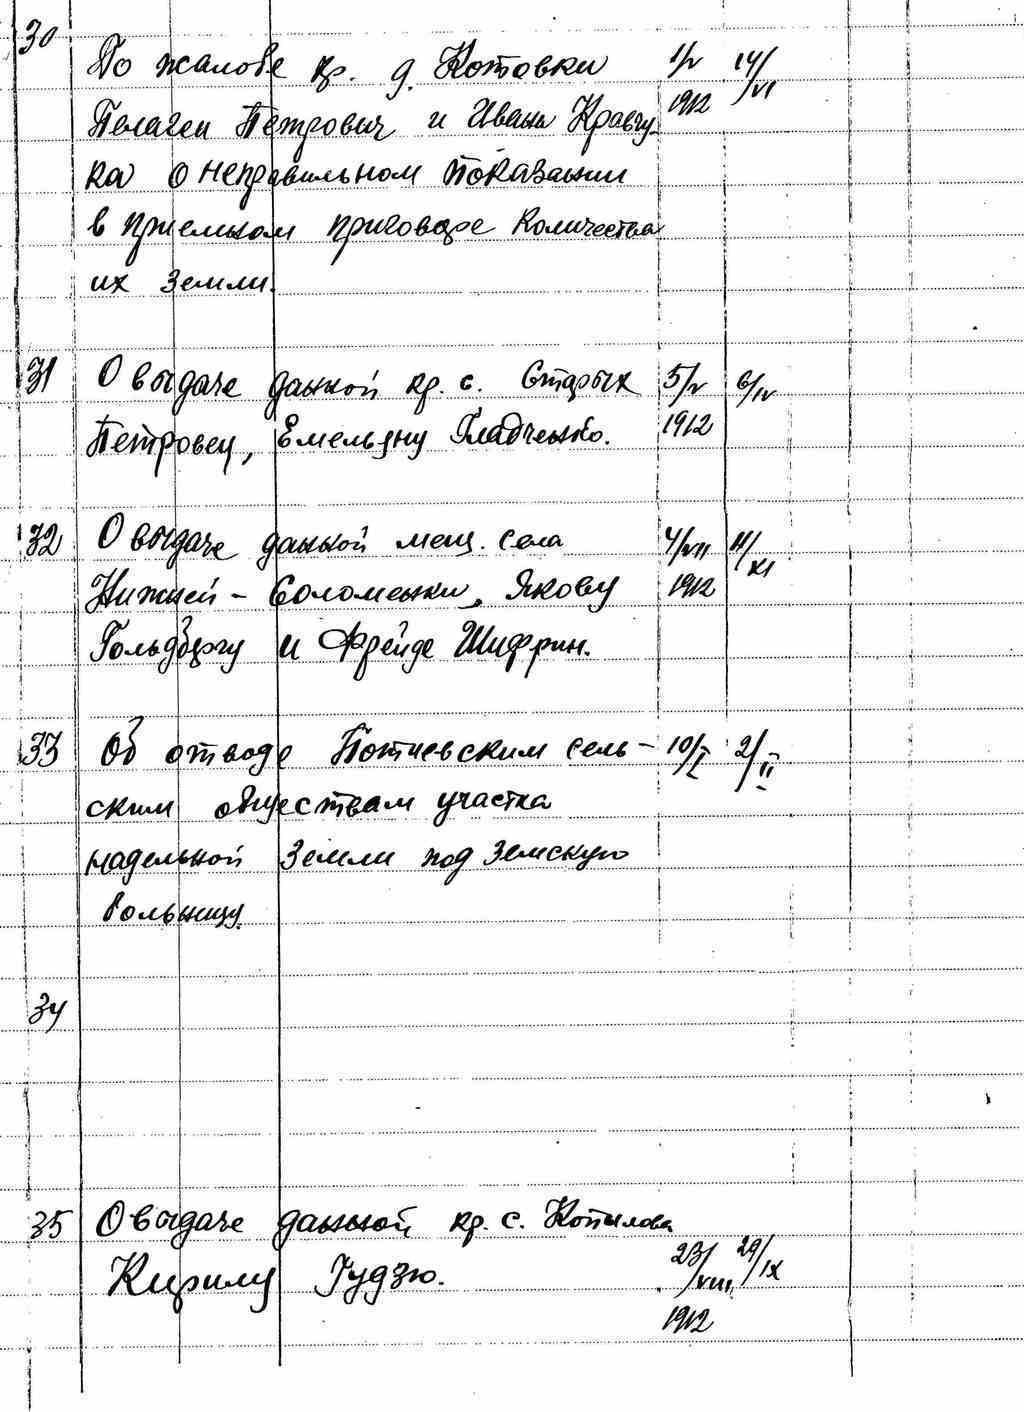 30 По жалобе кр. д. Котовки 1/V 14/VI
Пелагеи Петрович и Ивана Кравчу- 1912
ка о неправильном показании
в приемном приговоре количества
их земли.
31 О выдаче данной кр. с. Старых 5/V 6/IV
Петровец, Емельяну Гладченко. 1912
32 О выдаче данной мещ. села 4/VII 11/XI
Нижней - Соломенки, Якову 1912
Гольдбергу и Фрейде Шифрин.
33 Об отводе Потиевским сель- 10/I 2/II
ским обществам участка
надельной земли под земскую
больницу.
34
35 О выдаче данной кр. с. Копылова
Кирилу Гудзю. 23/VIII 29/IX
1912